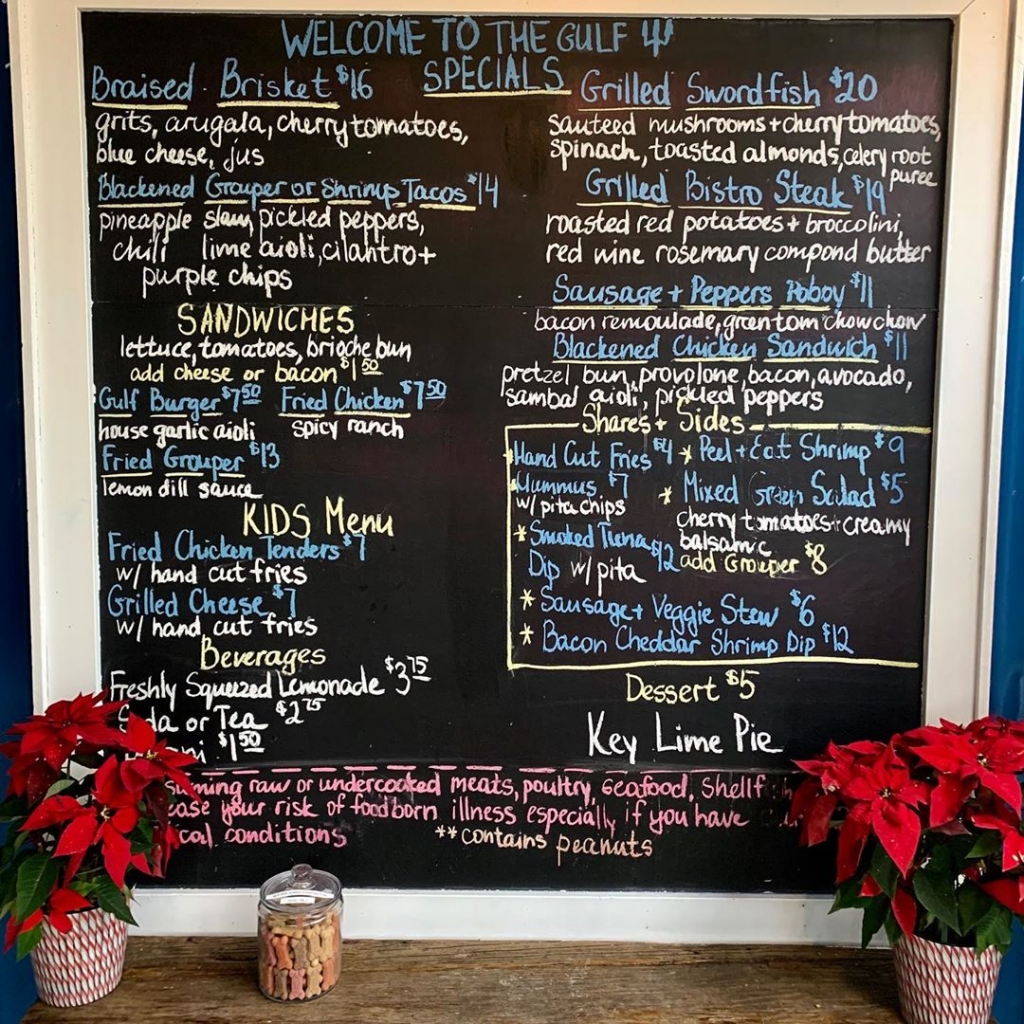 WELCOME TO THE GULF
SPECIALS
Braised Brisket $16
grits, arugala, cherry tomatoes,
blue cheese, jus
Blackened Grouper or Shrimp Tacos $14
pineapple slaw, pickled peppers,
chili lime aioli, cilantro +
purple chips
SANDWICHES
lettuce, tomatoes, brioche bun
add cheese or bacon $1 50
Gulf Burger $7 50 Fried Chicken $7 50
house garlic aioli spicy ranch
Fried Grouper $13
lemon dill sauce
KIDS Menu
Fried Chicken Tenders $7
w/ hand cut fries
Grilled Cheese $7
w/ hand cut fries
Beverages
Freshly Squeezed Lemonade $3 75
Soda or Tea $2 75
$1 50
Grilled Swordfish $20
sauteed mushrooms + cherry tomatoes,
spinach, toasted almonds, celery root
puree
Grilled Bistro Steak $19
roasted red potatoes + broccolini,
red wine rosemary compond butter
Sausage + Peppers Poboy $11
bacon remoulade, green tom chow chow
Blackened Chicken Sandwich $11
pretzel bun, provolone, bacon, avocado,
sambal aioli, pickled peppers
Shares + Sides
Hand Cut Fries $4 * Peel + Eat Shrimp $9
Hummus $7 * Mixed Green Salad $5
w/ pita chips cherry tomatoes + creamy
* Smoked Tuna $12 balsamic
Dip w/ pita add Grouper $8
* Sausage + Veggie Stew $6
* Bacon Cheddar Shrimp Dip $12
Dessert $5
Key Lime Pie
raw or undercooked meats, poultry, seafood,
your risk of foodborn illness especially if you have
conditions **contains peanuts